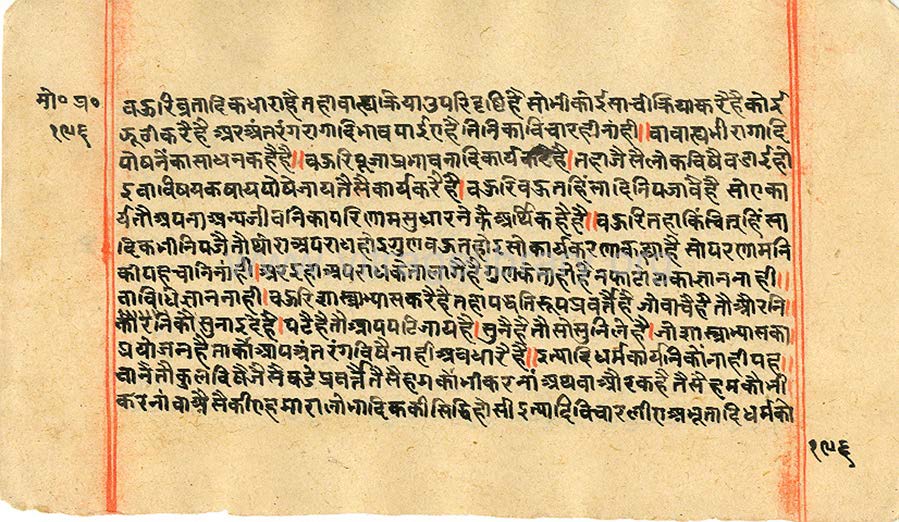 मो० प्र०
१९६
बऊरि व्रतादिक धारा है तहा बाह्य क्रिया उपरि दृष्टि है सो भी कोई साची क्रिया करै है कोई
झूठी करै है अर अंतरंग रागादि भाव पाईए है तिनिका विचार ही नांही॥ वा बाह्य भी रागादि
पोषनेंका साधन कहै है॥ बऊरि पूजा प्रभावनादि कार्य करै है। तहा जैसै लोकविषै वडाई हो
इ वा विषय कषाय पोषे जाय तैसै कार्य करै है। बऊरि बऊत हिंसादि निपजावै है सो ए का
र्य तौ अपना अन्य जीवनिका परिणाम सुधारनेकै अर्थि कहै है॥ बऊरि तहा किंचित् हिंसा
दिक भी निपजै तौ थोरा अपराध होइ गुण बऊत होइ सो कार्य करणा कह्या है सो परणामनि
की पहचानि नांही। अर इहा अपराध केता लागै है गुण केता हो है नफा टोटाका ज्ञान नाही॥
वा विधि अविधिका ज्ञान नाही। बऊरि शास्त्राभ्यास करै है तहा पद्धतिरूप प्रवर्तै है जो वाचै है तौ औरनि
कौं सुनाइ दे है। पढै है तौ आप पढि जाय है। सुनै है तौ सो सुनि ले है। जो शास्त्राभ्यासका
प्रयोजन है ताकौं आप अंतरंगविषै नाही अवधारै है॥ इत्यादि धर्मकार्यनिकौं नाही पह
चानै तौ कुलविषै जैसै वडे प्रवर्त्तै तैसै हमकौं भी करना अथवा और करै है तैसै हमकौ भी
करना वा असै कीए हमारा लोभादिककी सिद्धि होसी इत्यादि विचार लीए अभूतार्थ धर्मको
१९६